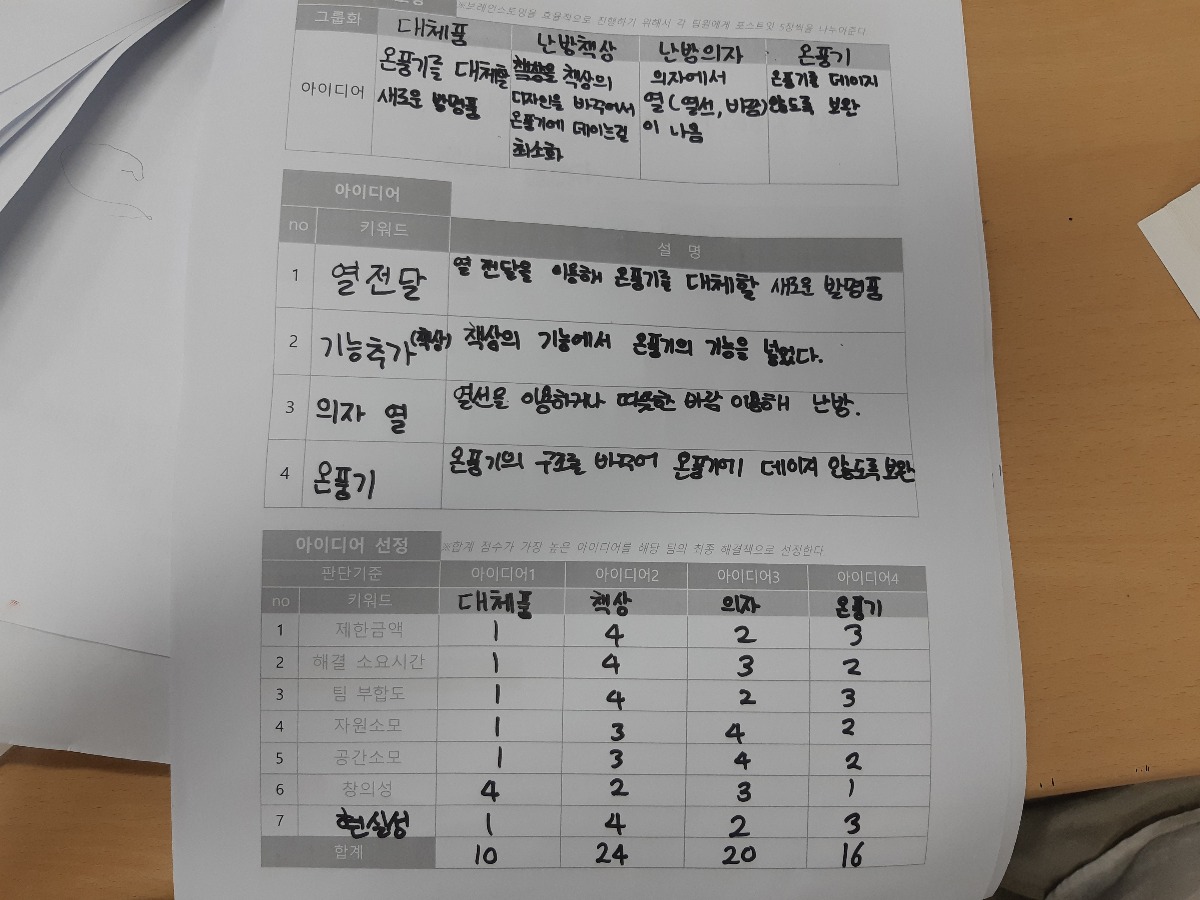 ※브레인스토밍을 효율적으로 진행하기 위해서 각 팀원에게 포스트잇 5장씩을 나누어준다
그룹화 대체품 난방책상 난방의자 온풍기
아이디어
온풍기를 대체할
새로운 발명품
책상의
디자인을 바꾸어서
온풍기에 데이는걸
최소화
의자에서
열(열선, 바람)
이 나옴
온풍기를 데이지
않도록 보완
아이디어
no 키워드 설 명
1 열전달 열 전달을 이용해 온풍기를 대체할 새로운 발명품
2 기능추가(책상) 책상의 기능에서 온풍기의 기능을 넣었다.
3 의자 열 열선을 이용하거나 따뜻한 바람 이용해 난방.
4 온풍기 온풍기의 구조를 바꾸어 온풍기에 데이지 않도록 보완
아이디어 선정 ※합계 점수가 가장 높은 아이디어를 해당 팀의 최종 해결책으로 선정한다
판단기준 아이디어1 아이디어2 아이디어3 아이디어4
no 키워드 대체품 책상 의자 온풍기
1 제한금액 1 4 2 3
2 해결 소요시간 1 4 3 2
3 팀 부합도 1 4 2 3
4 자원소모 1 3 4 2
5 공간소모 1 3 4 2
6 창의성 4 2 3 1
7 현실성 1 4 2 3
합계 10 24 20 16